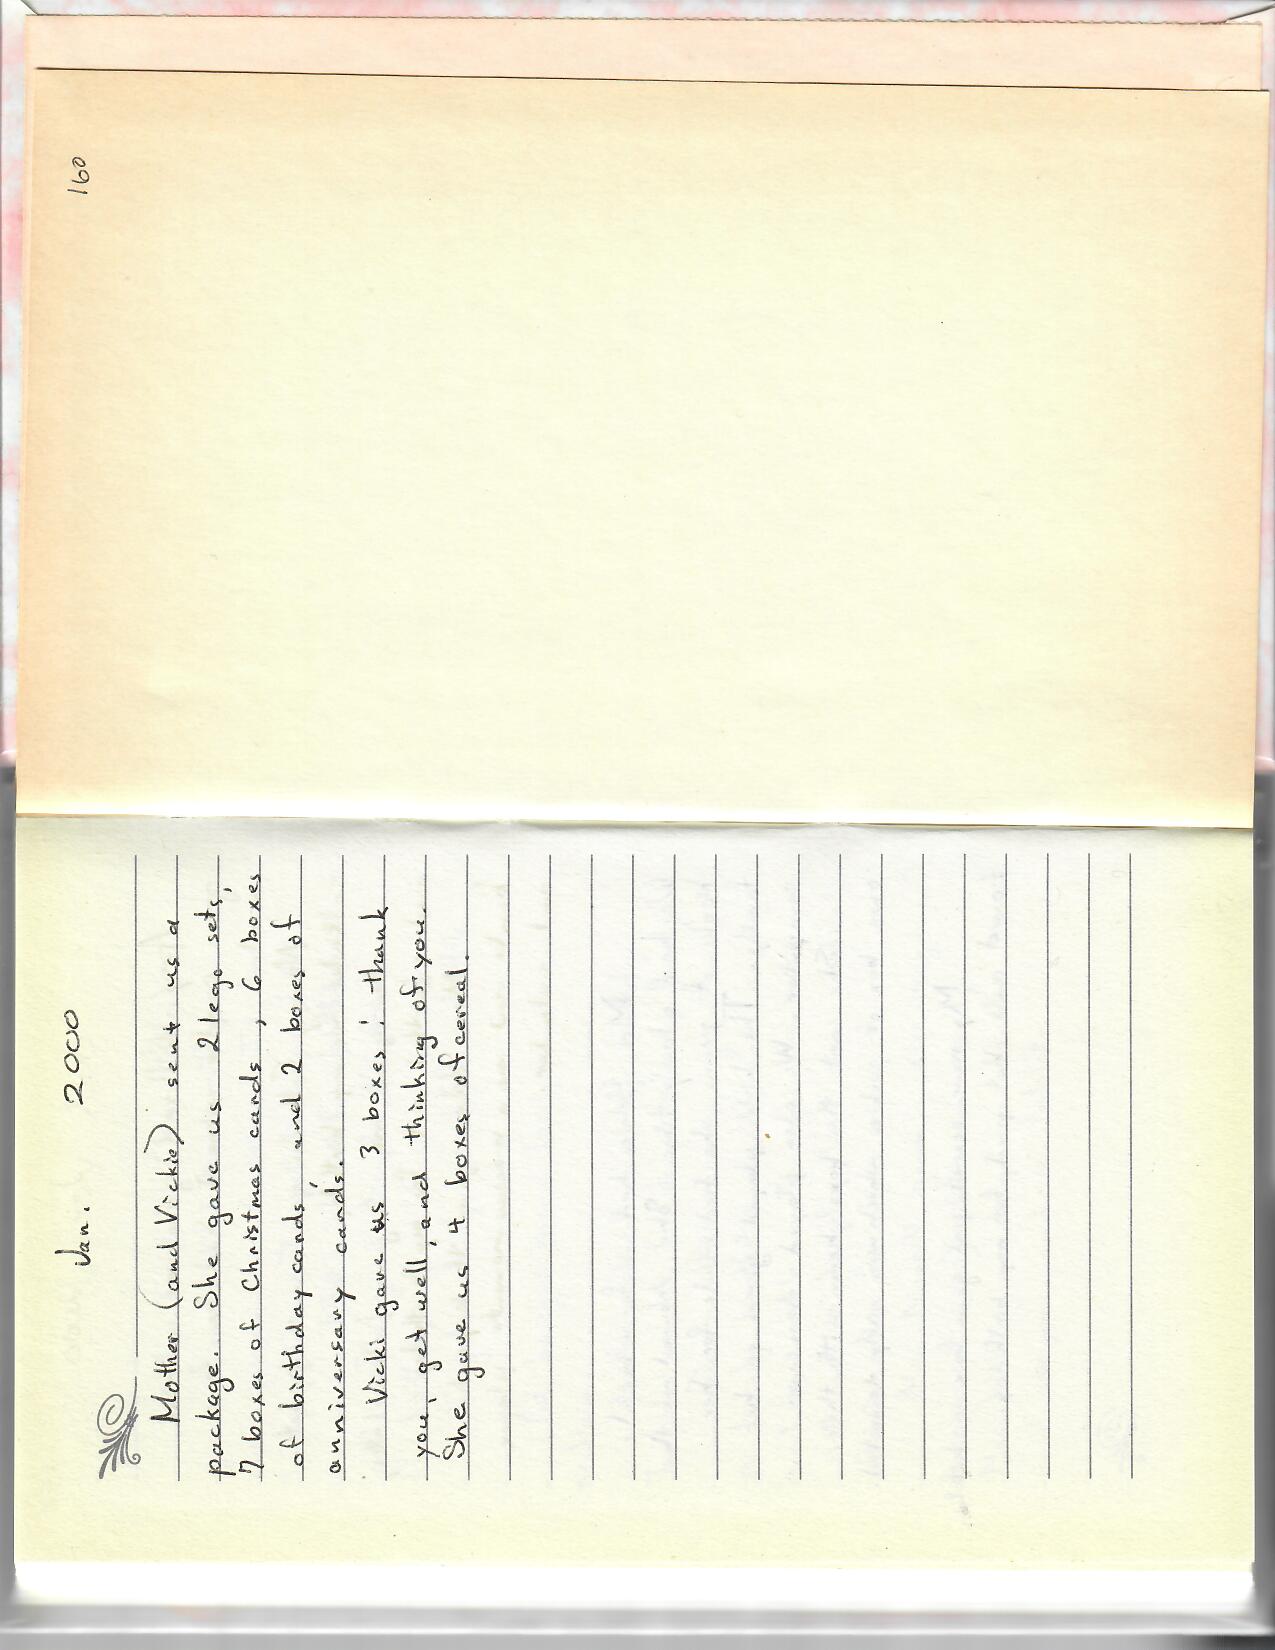 Jan. 2000
Mother (and Vickie) sent us a
package. She gave us 2 lego sets,
7 boxes of Christmas cards, 6 boxes
of birthday cards, and 2 boxes of
anniversary cards.
Vicki gave us 3 boxes: thank
you, get well, and thinking of you.
She gave us 4 boxes of cereal.
160